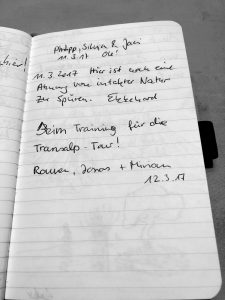 Philipp, Silvia & Jani
11.3.17 Olé!
11.3.2017 Hier ist noch eine
Ahnung von intakter Natur
zu spüren. Ekkehard
Beim Training für die
Transalp-Tour!
Rouven, Jonas + Miriam
12.3.17